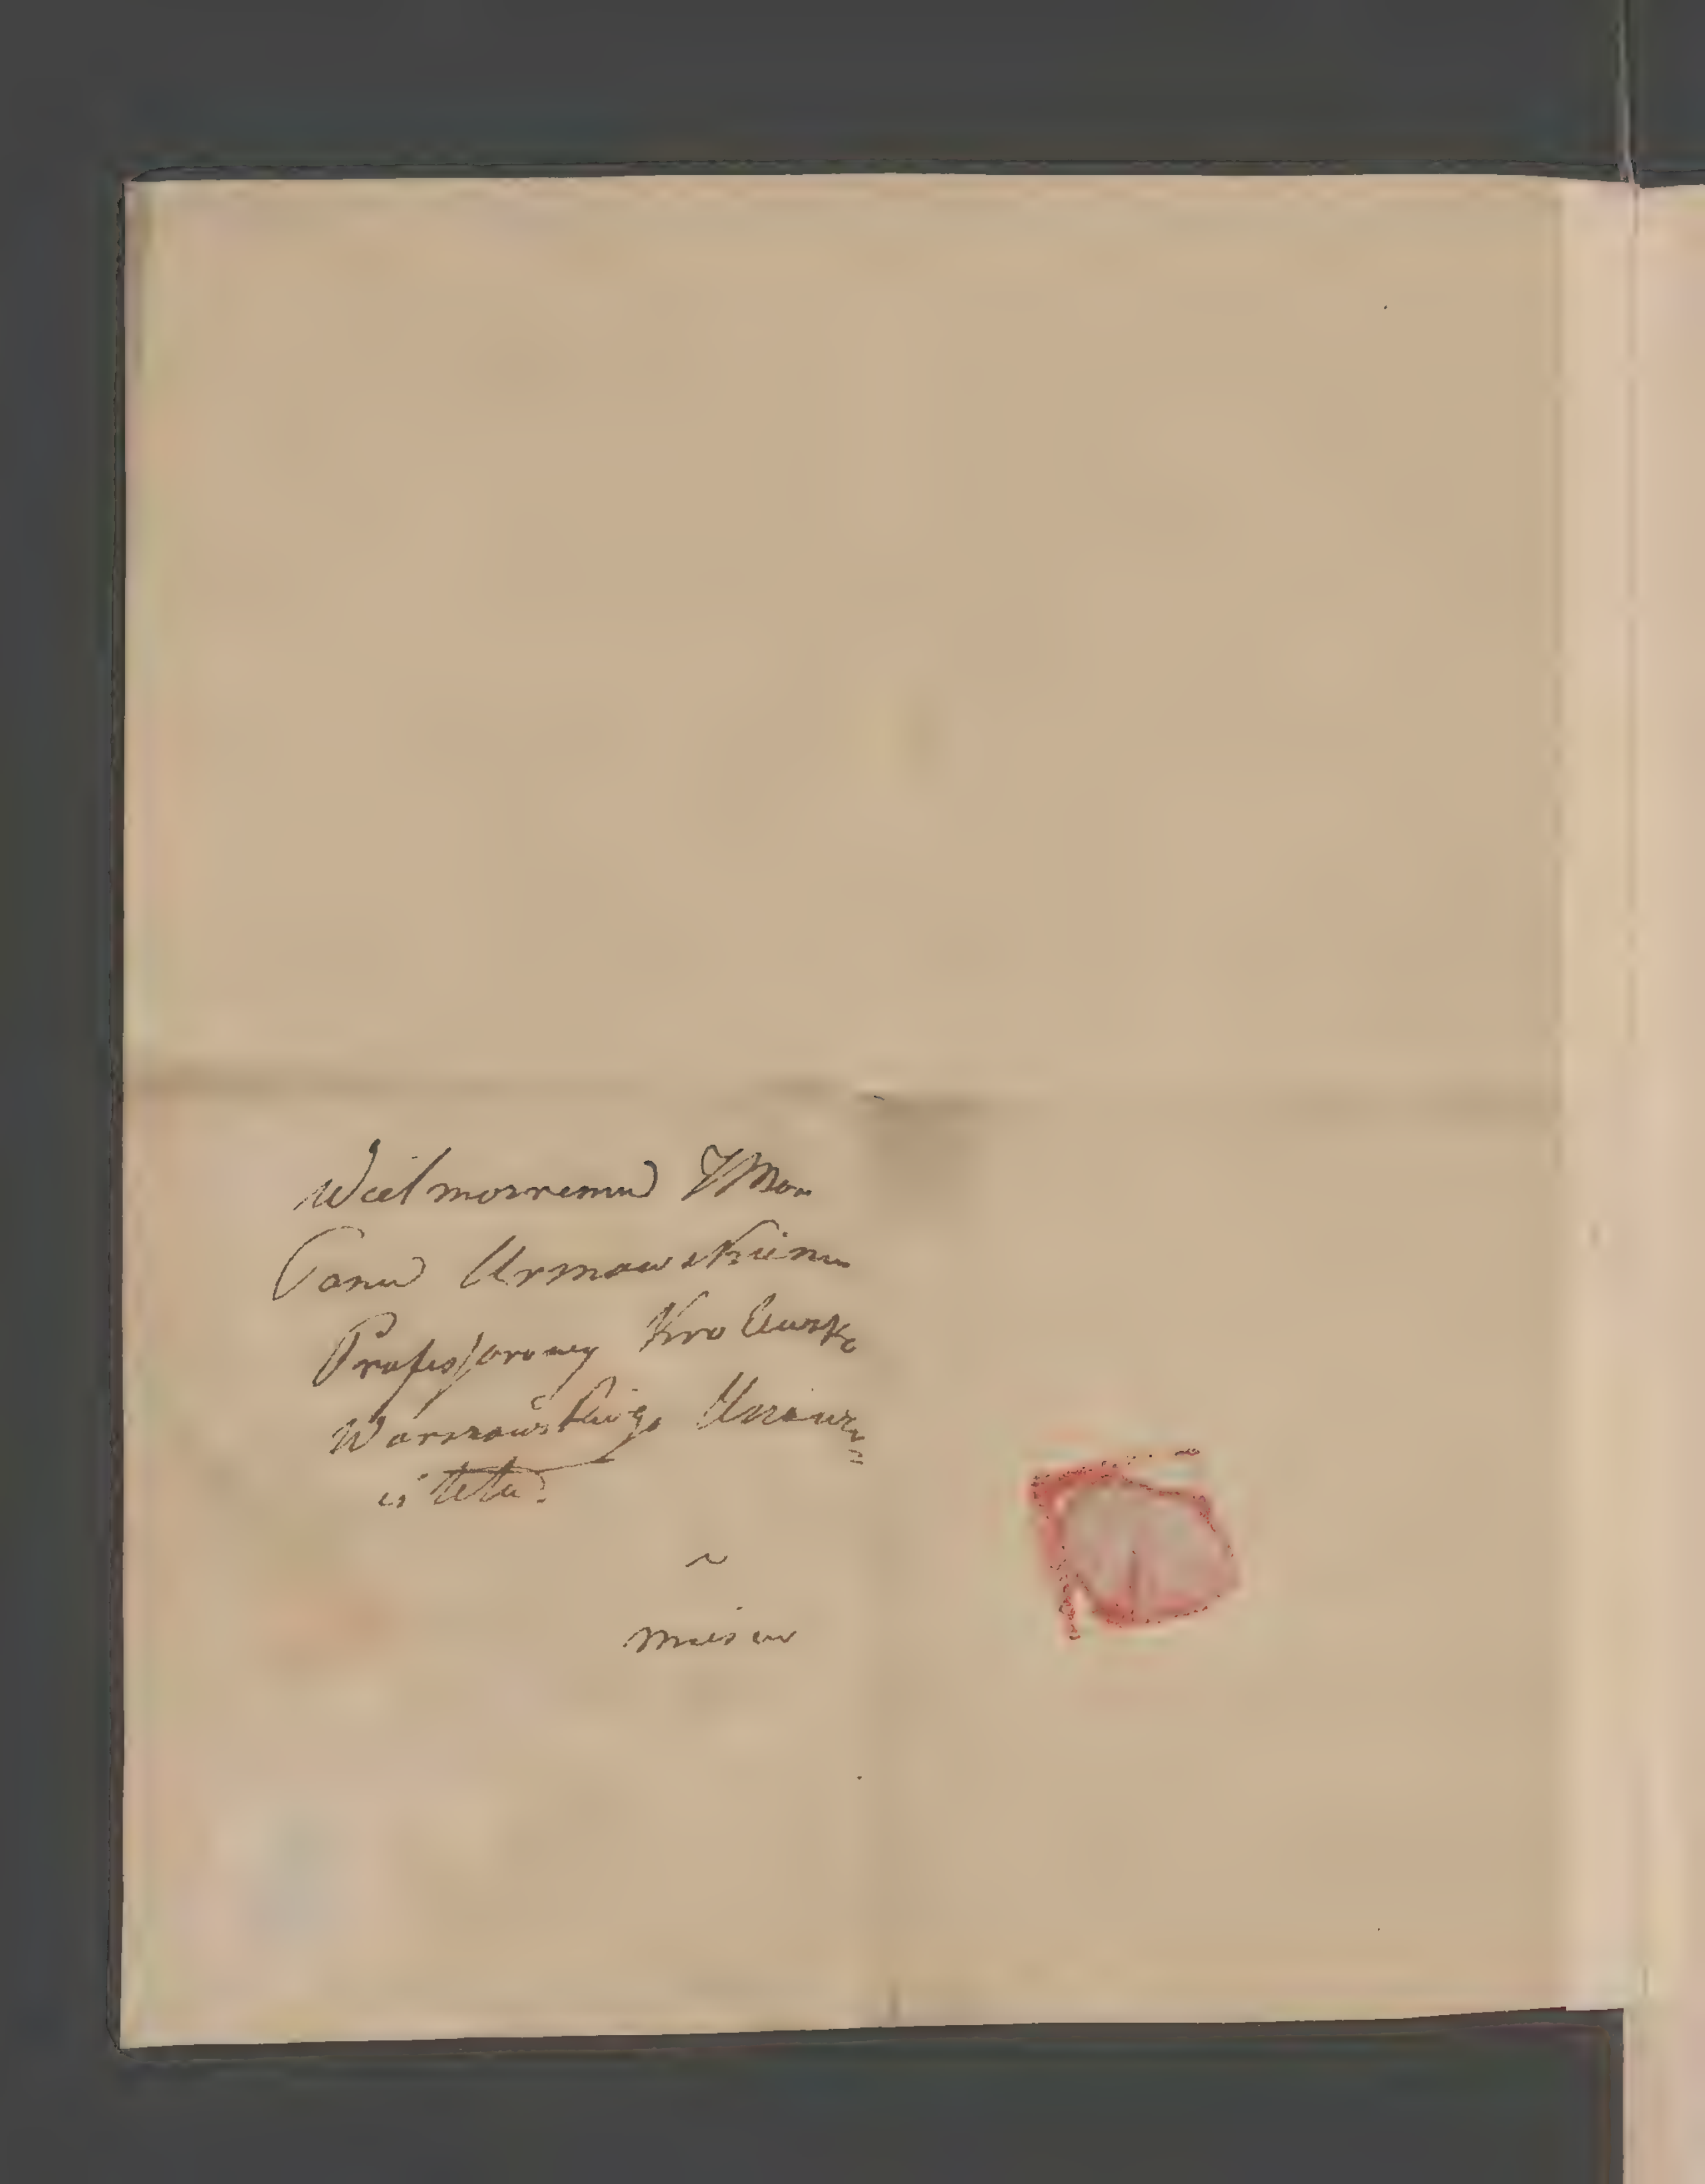 Wielmożnemu JMo
Panu Urmowskiemu
Professorowy Krolewsko
Warszawskiego Uniwer=
sitetu.
~